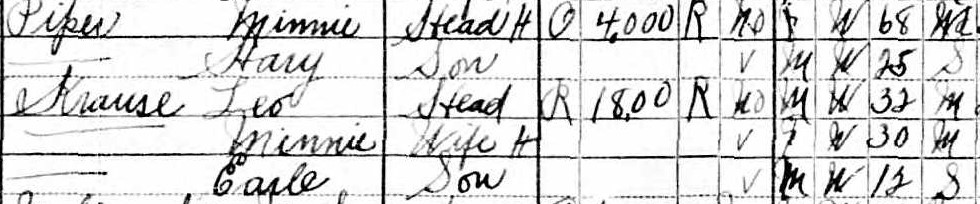 Piper Minnie Head H O 4,000 R No F W 68 Wd
Harry Son V M W 25 S
Krause Leo Head R 18.00 R No M W 32 M
Minnie Wife H V F W 30 M
Earle Son V M W 12 S